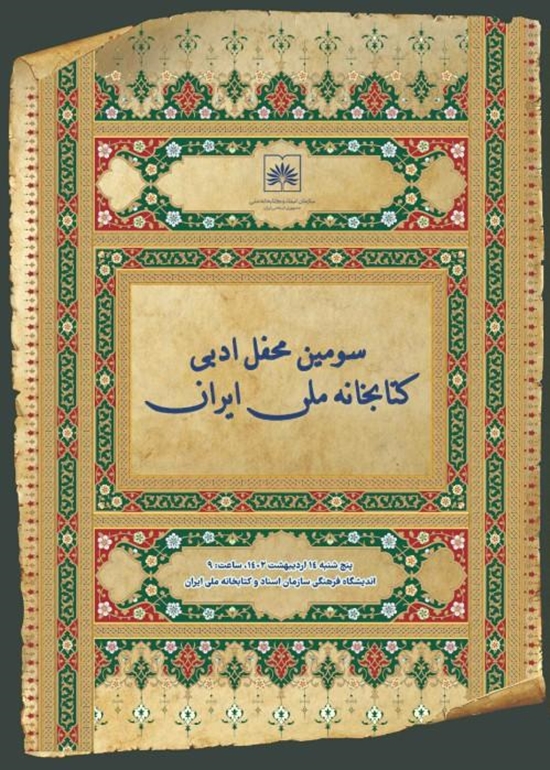 سازمان اسناد و کتابخانه ملی
جمهوری اسلامی ایران
سومین محفل ادبی
کتابخانه ملی ایران
پنج شنبه ۱۴ اردیبهشت ۱۴۰۲، ساعت: ۹
اندیشگاه فرهنگی سازمان اسناد و کتابخانه ملی ایران